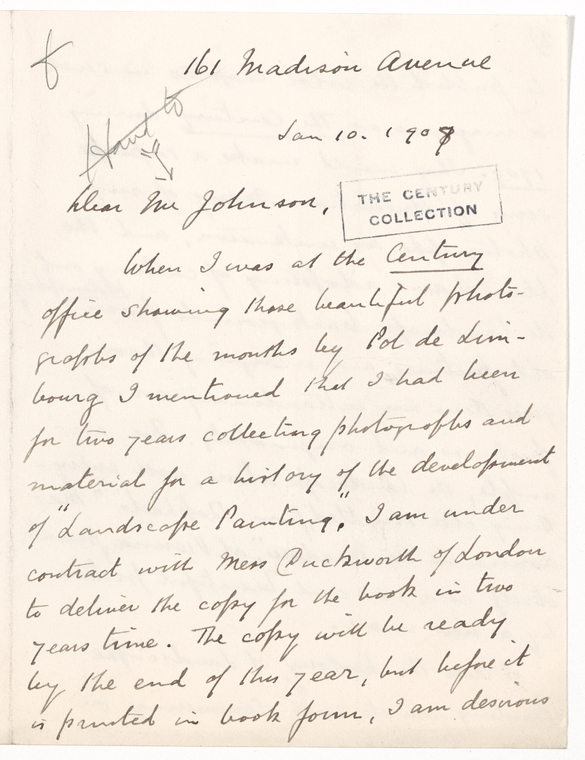 161 Madison Avenue
Hunt to
Jan 10. 1908
Dear Mr Johnson,
THE CENTURY
COLLECTION
When I was at the Century
office showing those beautiful photo-
graphs of the months by Pol de Lim-
bourg I mentioned that I had been
for two years collecting photographs and
material for a history of the development
of "Landscape Painting". I am under
contract with Mess Duckworth of London
to deliver the copy for the book in two
years time. The copy will be ready
by the end of this year, but before it
is printed in book form, I am desirous